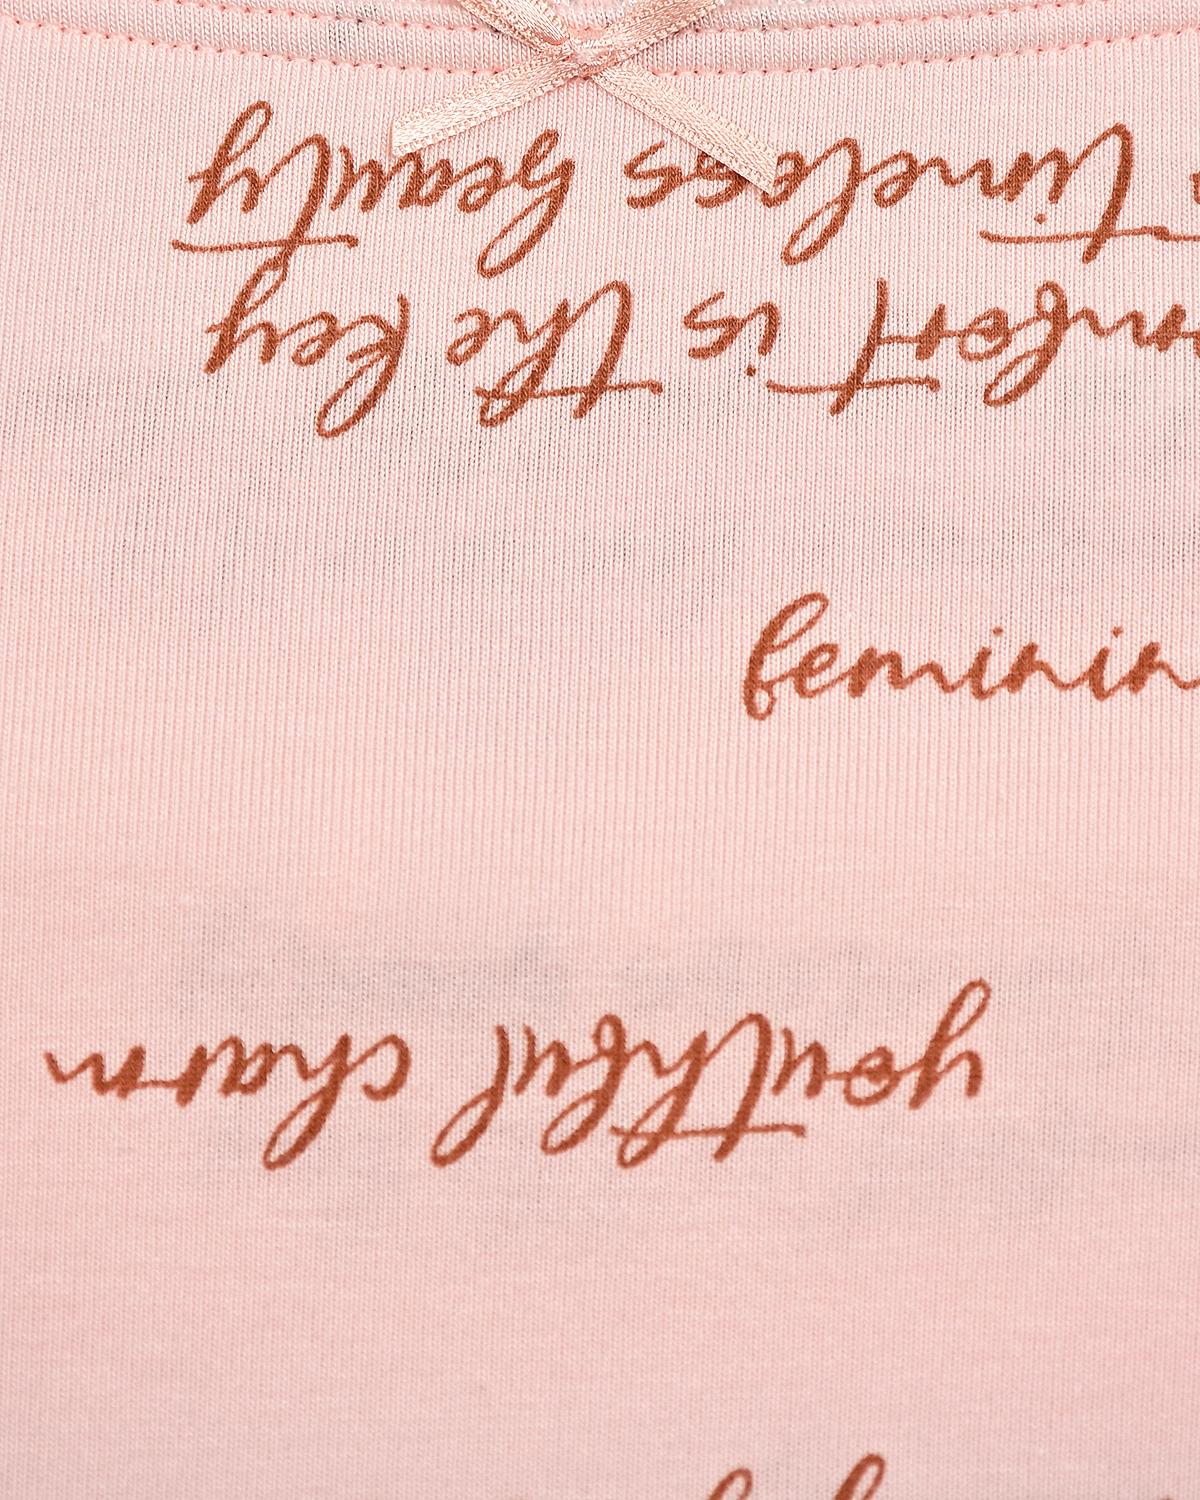 mfort is the key
timeless beauty
feminin
youthful charm